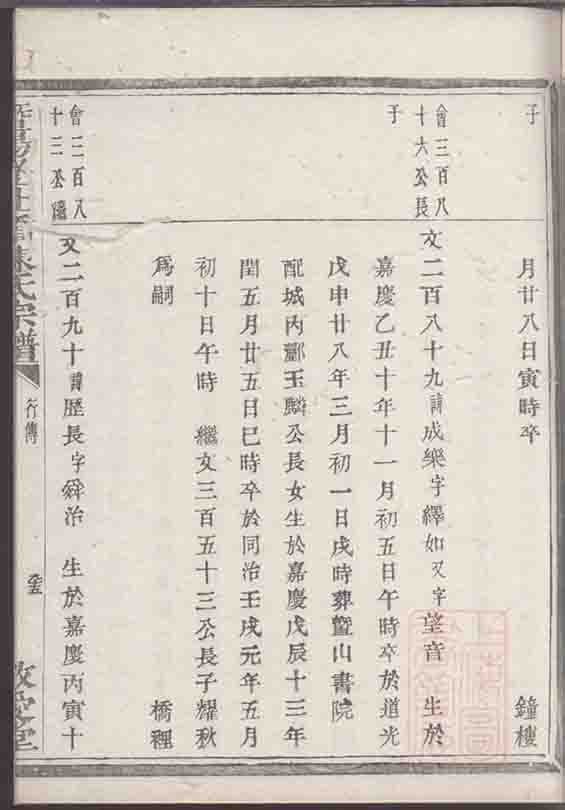 子
月廿八日寅時卒
鐘樓
會三百八
十六公長
子
文二百八十九諱成樂字繹如又字望音 生於
嘉慶乙丑十年十一月初五日午時卒於道光
戊申廿八年三月初一日戌時葬暨山書院
配城內酈玉麟公長女生於嘉慶戊辰十三年
閏五月廿五日巳時卒於同治壬戌元年五月
初十日午時 繼文三百五十三公長子耀秋
爲嗣
橋裡
會三百八
十三公
文二百九十諱歷長字舜治 生於嘉慶丙寅十
暨陽 氏宗譜
行傳